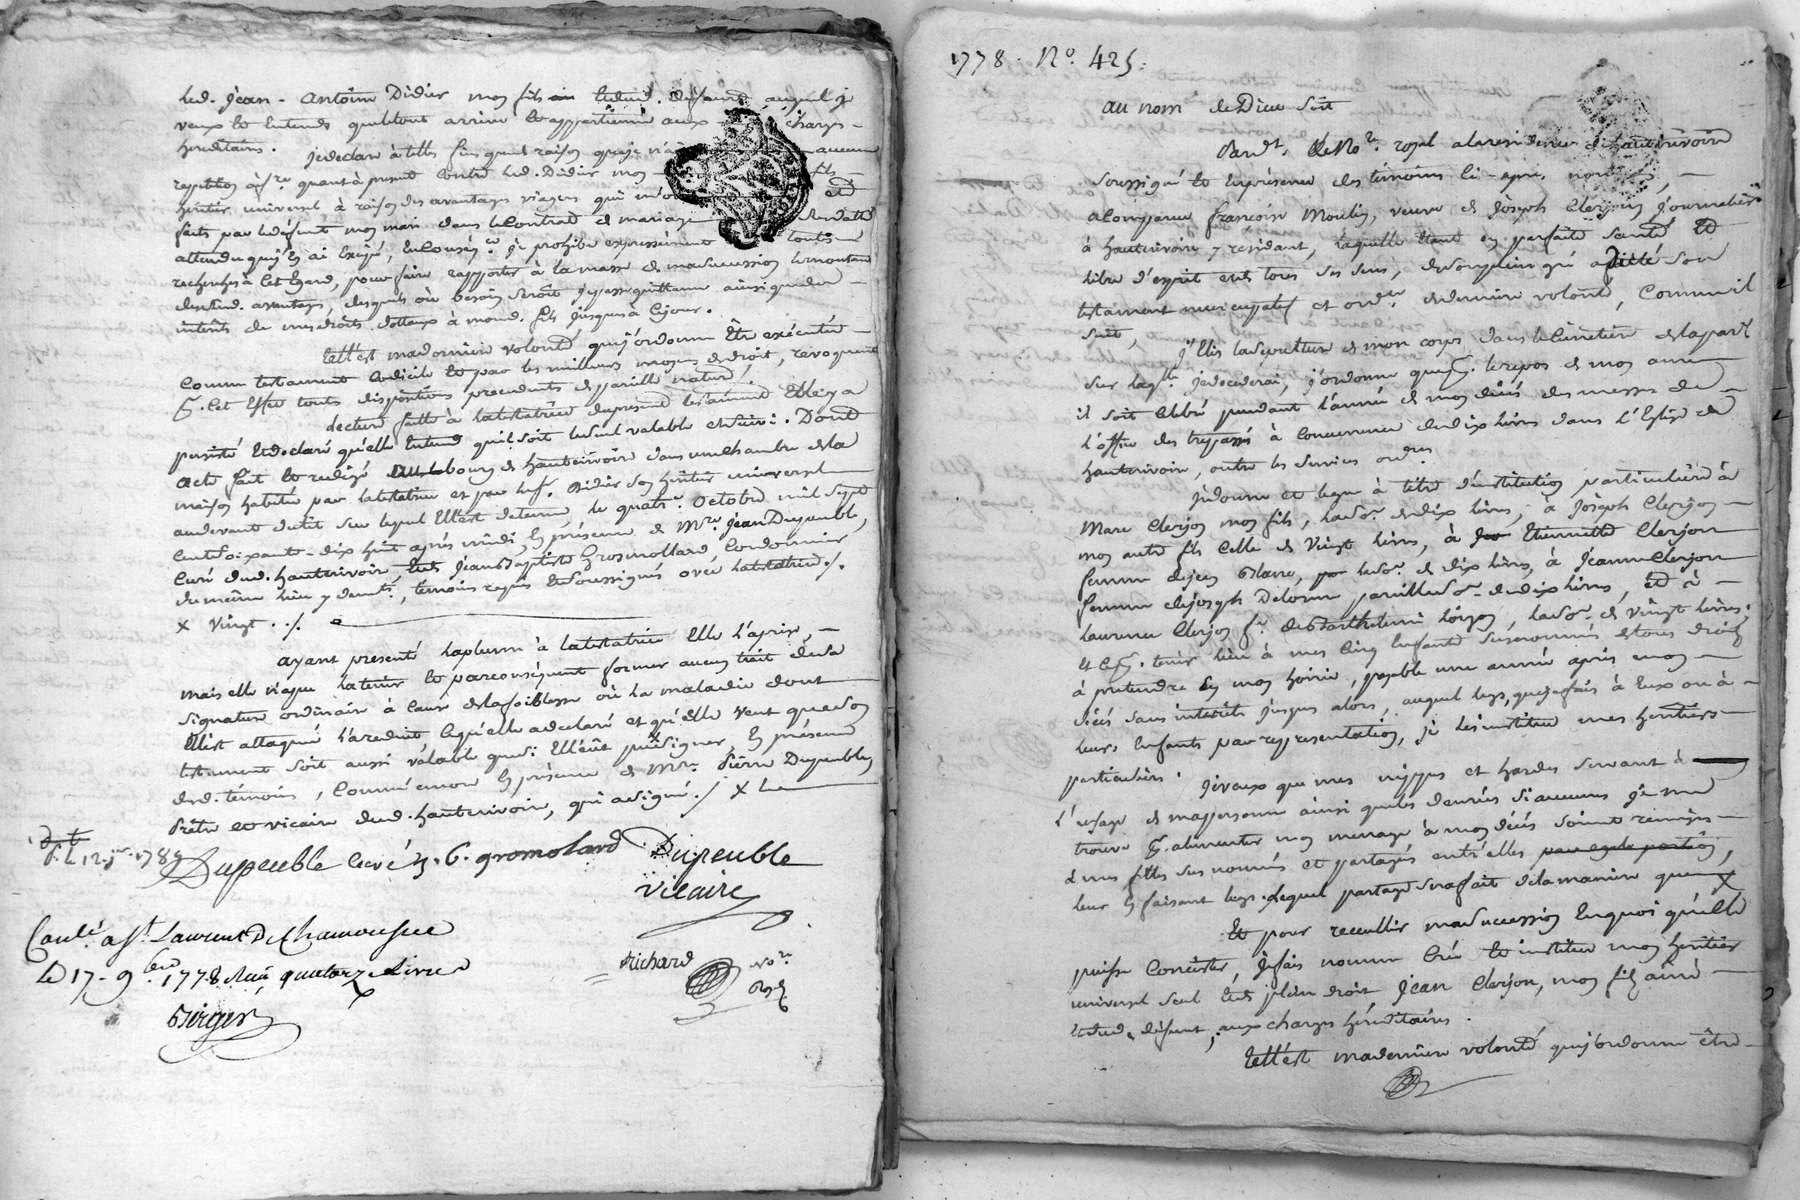 lad. Jean-Antoine Didier mon fils dud. défunt auquel je
veux et entends que le tout arrive et appartienne aux charges
héréditaires. Je déclare à telles fins que de raison que je n'ai aucune
répétition à fre quant à présent contre led. Didier mon fils
héritier universel à raison des avantages viagers qui m'o et
faits par led. défunt mon mari dans le contrat de mariage
attendu que j'en ai exigé, en conséqce je prohibe expressément toutes
recherches à cet égard, pour faire rapporter à la masse de ma succession le montant
desdits avantages, desquels où besoin seroit je passe quittance ainsi que des
intérêts de mes droits dottaux à mond. fils jusques à ce jour.
Telle est ma dernière volonté que j'ordonne être exécutée
comme testament codicile et par les meilleurs moyens de droit, révoquant
p. cet effet toutes dispositions précédentes de pareille nature,
lecture faitte à la testatrice du présent testament elle y a
persisté et déclaré qu'elle entend qu'il soit le seul valable et suivi. Dont
acte fait et rédigé au bourg de hauterivoire dans une chambre de la
maison habitée par la testatrice et par led. Didier son héritier universel
au devant du lit sur lequel elle est détenue, le quatre octobre mil sept
cent soixante-dix huit après midi, en présence de Mre Jean Dupeuble,
curé dud. hauterivoire, Jean Baptiste Gromollard cordonnier
du même lieu y demt, témoins requis et soussignés avec la testatrice ./.
x vingt ./.
ayant presenté la plume à la testatrice elle l'a prise,
mais elle n'a pu la tenir et par conséquent former aucun trait de sa
signature ordinaire à cause de la foiblesse où la maladie dont
elle est attaquée l'a réduit ce qu'elle a déclaré et qu'elle veut que son
testament soit aussi valable que si elle eût pu signer, en présence
desd. témoins, comme encore en présence de Mre Pierre Dupeuble
Prêtre et vicaire dud. hauterivoire, qui a signé ./. x
12 1789
Dupeuble curé J. B. gromolard Dupeuble
vicaire
Conlé a St. Laurent De Chamousset
Le 17 - 9bre 1778 Reçu quatorze livres
Richard nore
Roy
Berger
1778. No. 425.
au nom de Dieu soit
Pardt. le Nore. royal à la résidence de hauterivoire
soussigné et en présence des témoins ci-après nommés,
a comparu françoise Moulin, veuve de Joseph Clerjon journalier
à hauterivoire y résidant, laquelle étant en parfaite santé et
libre d'esprit et de tous ses sens, de son plein gré a dicté son
testament nuncupatif et ordre de dernière volonté, comme il
suit,
j'élis la sépulture de mon corps dans le cimetière de la parsse
sur laqlle je décéderai, j'ordonne que p. le repos de mon ame
il soit célébré pendant l'année de mon décès des messes de
l'office des trépassés à concurrence de dix livres dans l'Eglise de
hauterivoire, outre les services ordres.
je donne et lègue à titre d'institution particulière à
Marc Clerjon mon fils, la so. de dix livres, à Joseph Clerjon
mon autre fils celle de vingt livres, à Etiennette Clerjon
femme de jean Blanc, la so. de dix livres, à Jeanne Clerjon
femme de Joseph Delorme pareille so. de dix livres, et à
Laurence Clerjon fe. de Barthelemi la so. de vingt livres.
et ce p. tenir lieu à mes cinq enfants susnommés de tous droits
à prétendre en mon hoirie, payable une année après mon
décès sans intérêts jusques alors, auquel legs, que je fais à eux ou à
leurs enfants par représentation, je les institue mes héritiers
particuliers. je veux que mes nippes et hardes servant à
l'usage de ma personne ainsi que les denrées si aucunes je me
trouve p. alimenter mon ménage à mon décès soient remises
à mes filles susnommées et partagés entr'elles par egale portion,
leur en faisant legs. lequel partage sera fait de la manière que
Et pour recueillir ma succession en quoi qu'elle
puisse consister, je fais nomme crée et institue mon héritier
universel seul et de plein droit Jean Clerjon, mon fils ainé
et dud. défunt, aux charges héréditaires.
Telle est ma dernière volonté que j'ordonne être